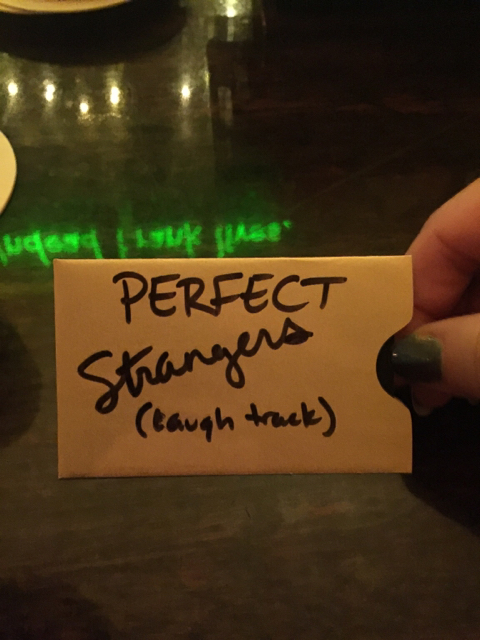 PERFECT
Strangers
(Laugh track)